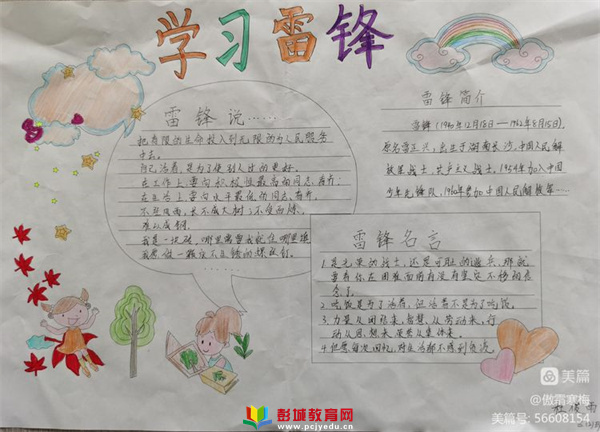 学习雷锋
雷锋说……
把有限的生命投入到无限的为人民服务
中去。
自己活着,是为了使别人过的更好。
在工作上,要向积极性最高的同志看齐;
在生活上,要向水平最低的同志看齐。
不经风雨,长不成大树;不受百炼,
难以成钢。
我是一块砖,哪里需要我就往哪里
我愿做一颗永不生锈的螺丝钉。
雷锋简介
雷锋(1940年12月18日——1962年8月15日),
原名雷正兴,出生于湖南长沙,中国人民解
放军战士,共产主义战士,1954年加入中国
少年先锋队,1960年参加中国人民解放军…
雷锋名言
1.是光荣的战士,还是可耻的逃兵,那就
要看你在困难面前有没有坚定不移的信
念了。
2.吃饭是为了活着,但活着不是为了吃饭。
3.力量从团结来,智慧从劳动来,行
动从思想来,荣誉从集体来。
4.但愿每次回忆,对生活都不感到负疚。
美篇
@傲霜寒梅
美篇号:56608154
彭城教育网
www.pcjyedu.cn